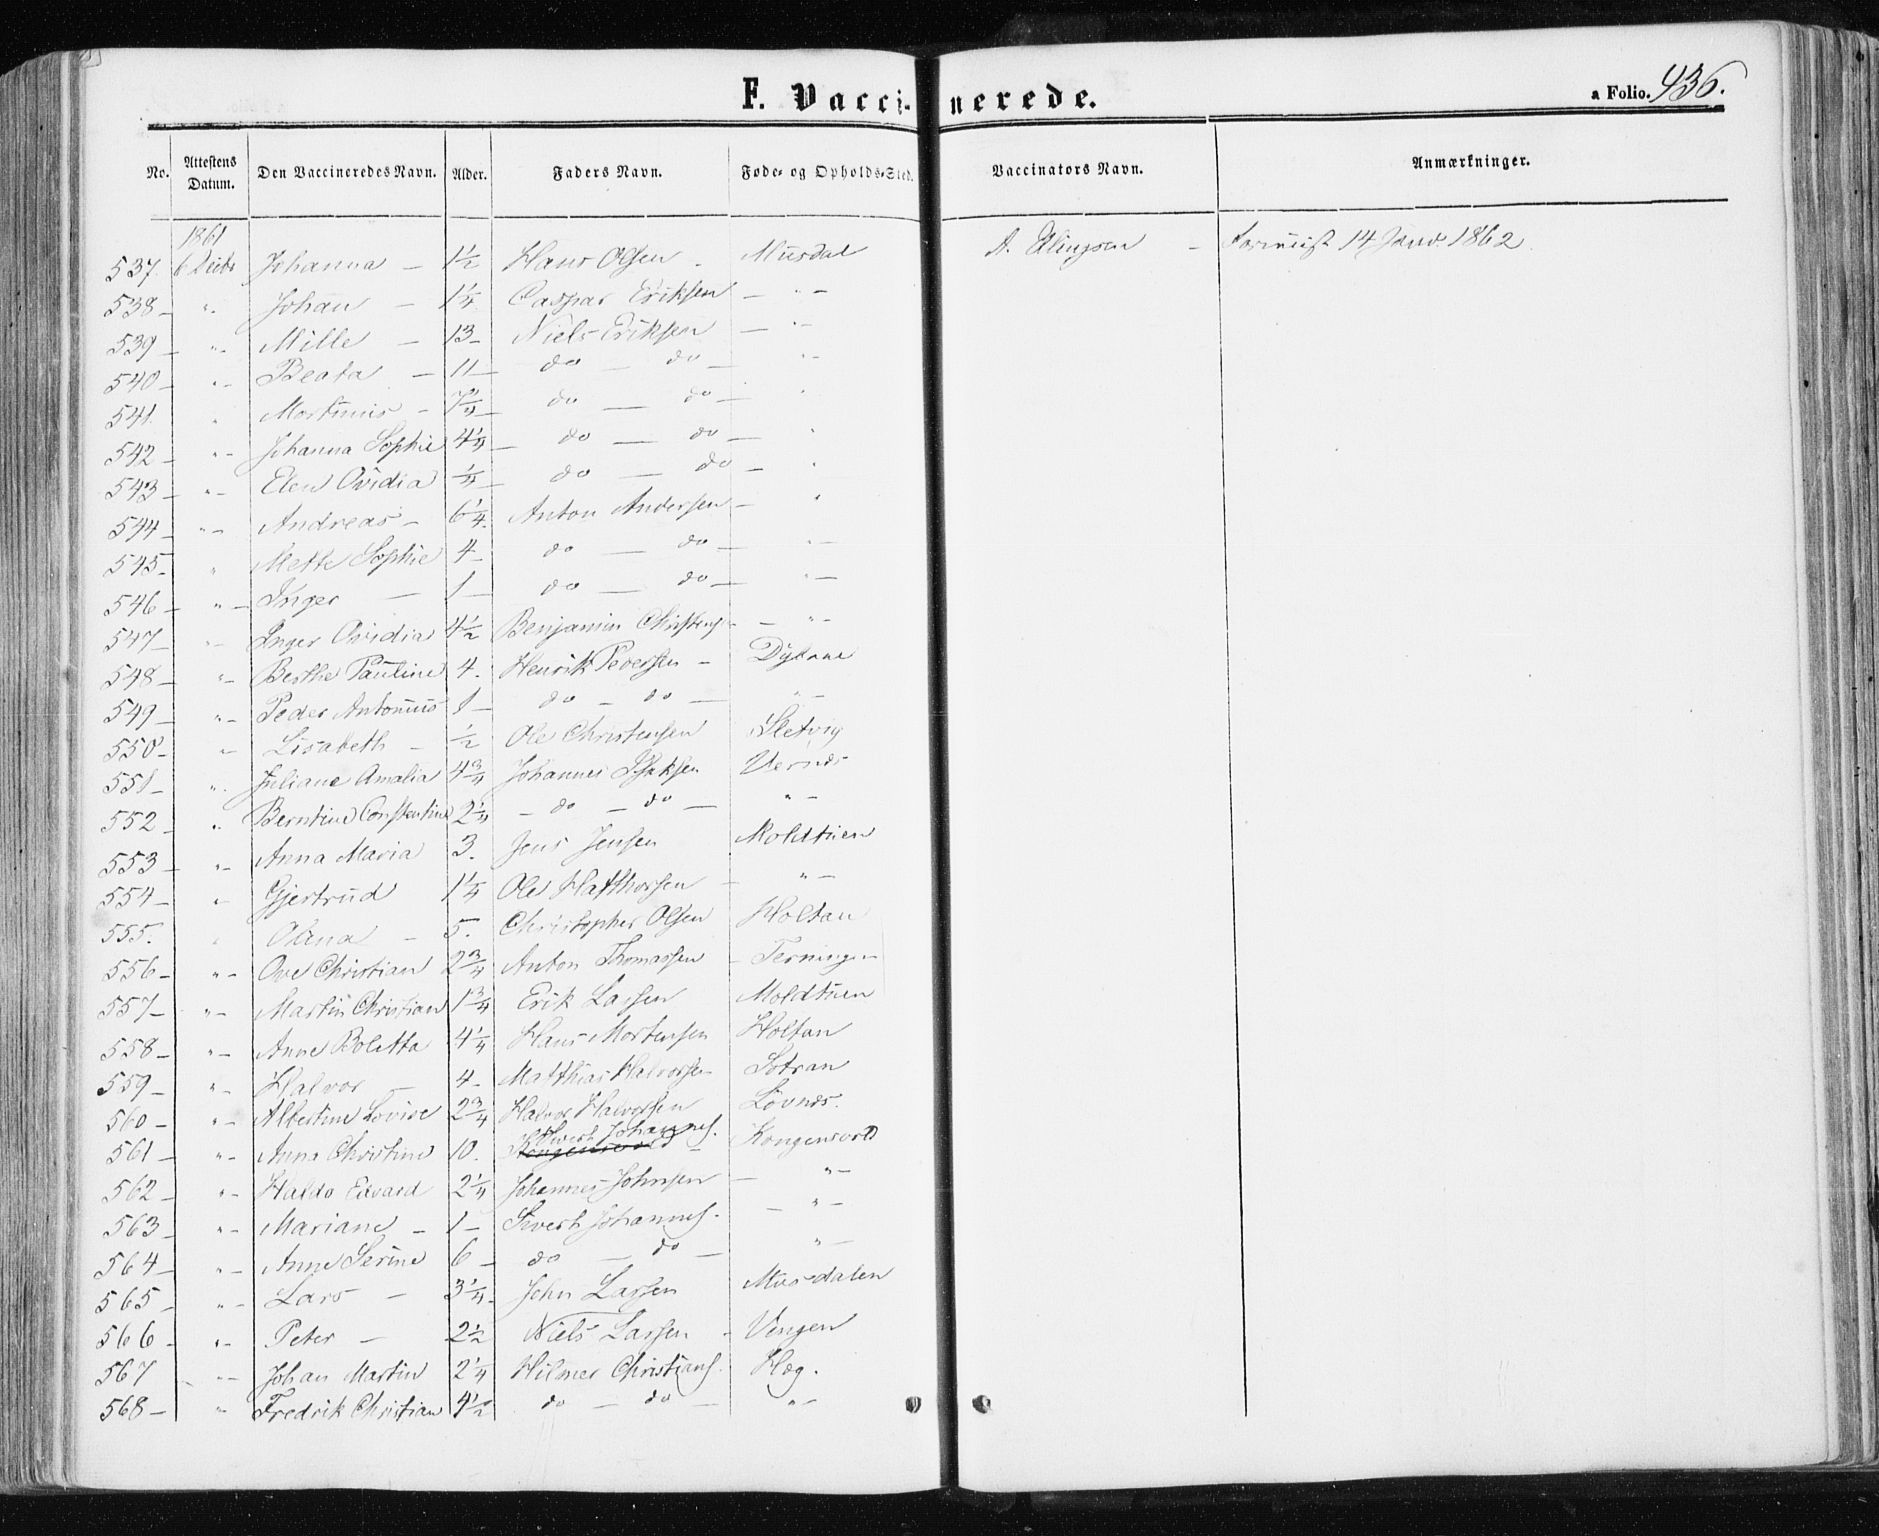 F. Vaccinerede.
a Folio. 436.
No. Attestens Datum. Den Vaccineredes Navn. Alder. Faders Navn. Føde- og Opholds-Sted. Vaccinators Navn. Anmærkninger.
1861
537. 6 Decbr Johanna — 1½ Hans Olsen - Musdal A. Ellingsen - 14 Janv. 1862
538 — " Johan — 1¼ Caspar Eriksen — " —
539 — " — Mille — 13 — Niels Eriksen — " —
540 — " — Beata — 11 — do — do — " —
541. " Martinus — 7¾ — do — do — "
542 — " — Johanna Sophie 4¼ — do — do — "
543 — " — Elen Ovidia ¼ — do — do — "
544 — " — Andreas — 6¼. Anton Andersen — "
545 — " Mette Sophie 4 — do — do — " —
546 — " — Inger — 1 — do — do — " —
547 — " — Inger Ovidia 4½ Benjamin Christens — " —
548 — " — Berthe Pauline 4. Henrik Pedersen — Dyrnes
549 — " — Peder Antonius 1 — do — do — " —
550 — " — Lisabeth — ½ Ole Christensen Sletvig
551 — " . Juliane Amalia 4¾ Johannes Isaksen Vernes
552 — " . Berntine Constentine 2¼ — do — do — " —
553 — " — Anna Maria 3. Jens Jensen Moldtuen
554 — " Gjertrud 1¼ Ole Halthorsen — " —
555. " Olina — 5. Christopher Olsen Holtan
556 — " — Ove Christian 2¾ Anton Thomassen — Terningen
557 — " — Martin Christian 1¾ Erik Larsen Moldtuen
558 — " — Anne Boletta 4¼ Hans Mortensen Holtan
559 — " — Halvor — 4 — Matthias Halvorsen Sotran
560 — " — Albertine Lovise 2¾ Halvor Halvorsen Lovnes.
561 — " — Anna Christine 10. Kongensvold Sivert Johannes. Kongensvold
562 — " — Haldo Edvard 2¼ Johannes Johnsen — " —
563 — " — Mariane — 1 — Sivert Johannes. — " —
564 — " — Anne Serine 6 — do — do — " —
565 — " — Lars — 3¼ — John Larsen Musdalen
566 — " — Peter — 2½ Niels Larsen — Vengen
567 — " — Johan Martin 2¼ Hilmer Christians. Hæg.
568 — " Fredrik Christian 4½ do — do — " —